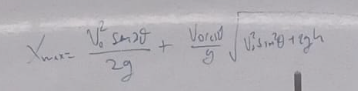 Xmax = V₀² sen2θ / 2g + V₀cosθ / g √(V₀² sin²θ + 2gh)